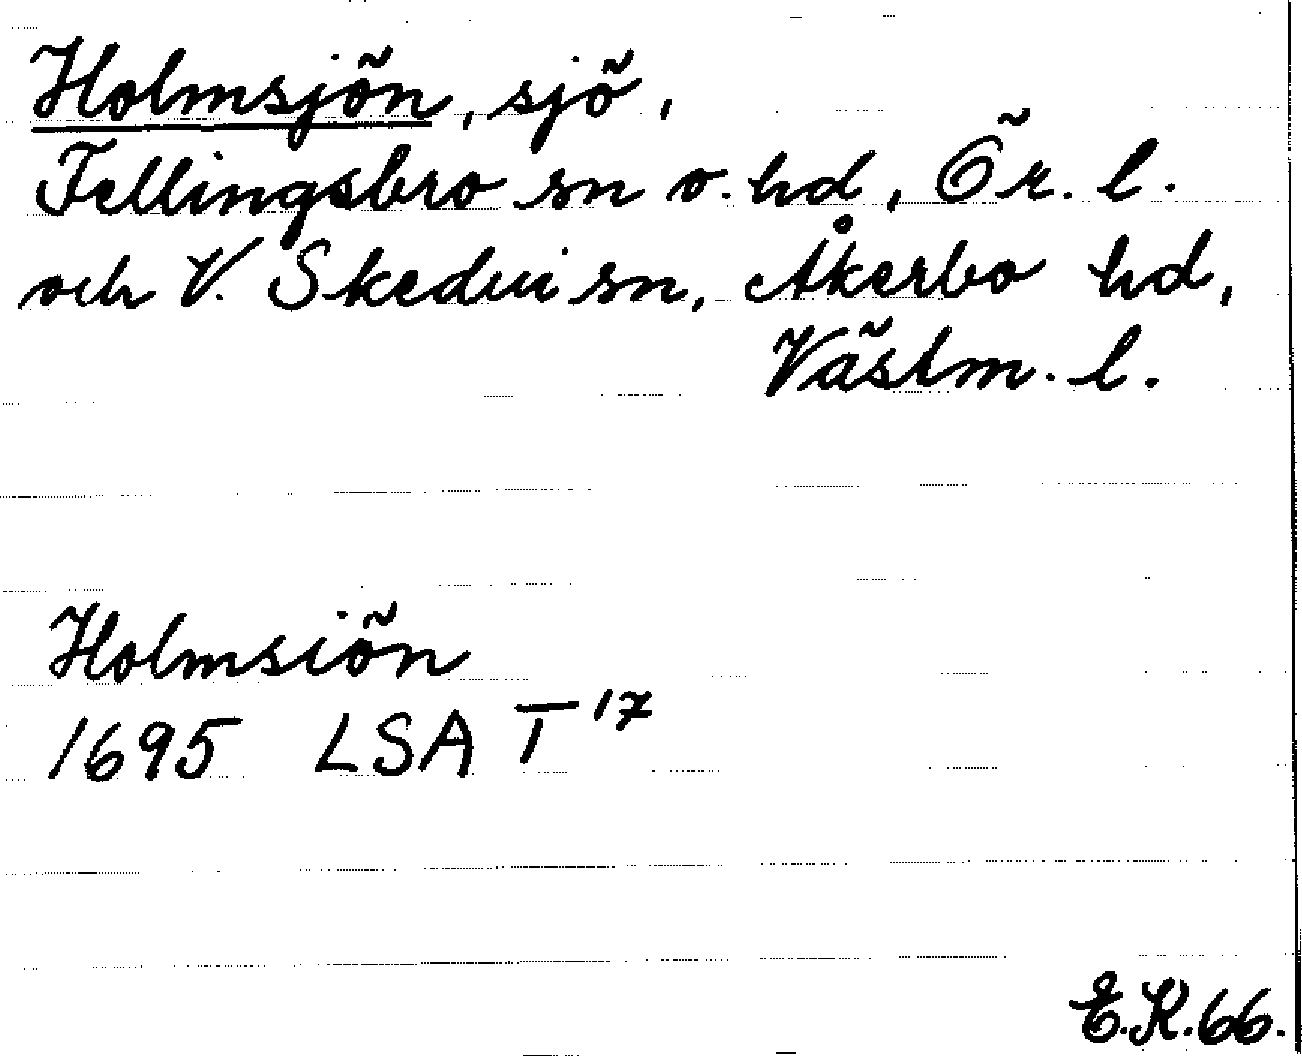 Holmsjön, sjö,
Fellingsbro sn o. hd, Ör. l.
och V. Skedvi sn, Åkerbo hd,
Västm. l.
Holmsiön
1695 LSA T 17
E.K. 66.